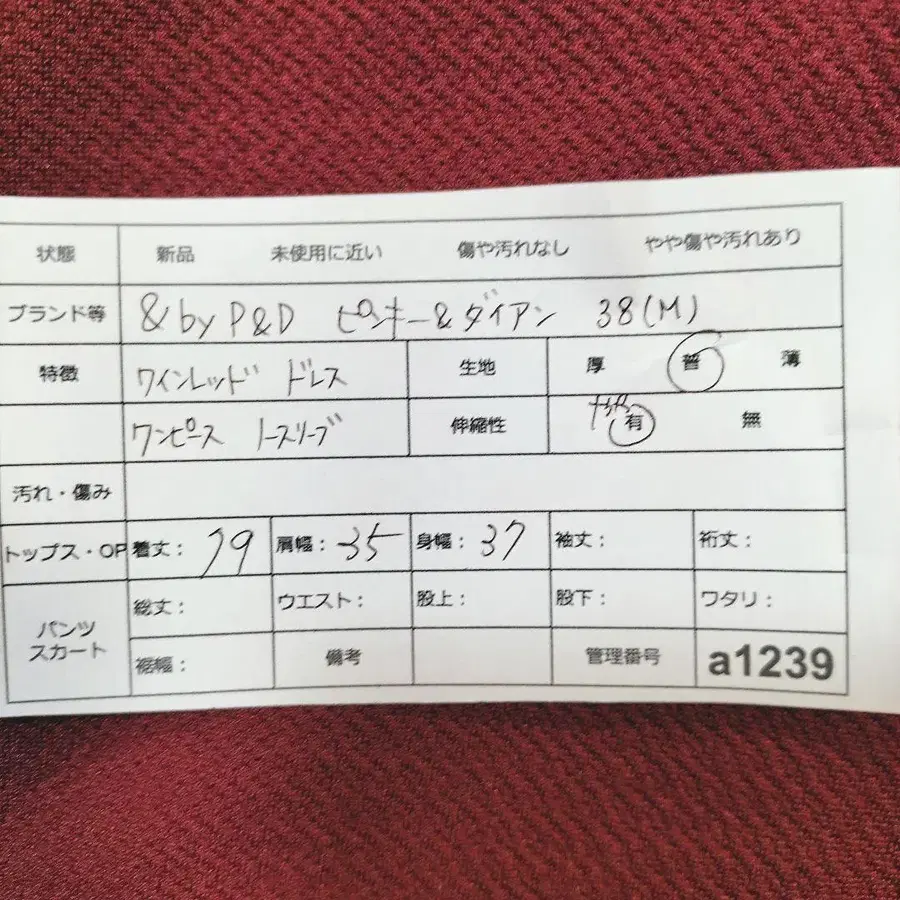 状態 新品 未使用に近い 傷や汚れなし やや傷や汚れあり
ブランド等 &by P&D ピンキー&ダイアン 38(M)
特徴 ワインレッド ドレス 生地 厚 普 薄
ワンピース ノースリーブ 伸縮性 やや有 無
汚れ・傷み
トップス・OP 着丈: 79 肩幅: 35 身幅: 37 袖丈: 裄丈:
パンツ スカート 総丈: ウエスト: 股上: 股下: ワタリ:
裾幅: 備考 管理番号 a1239